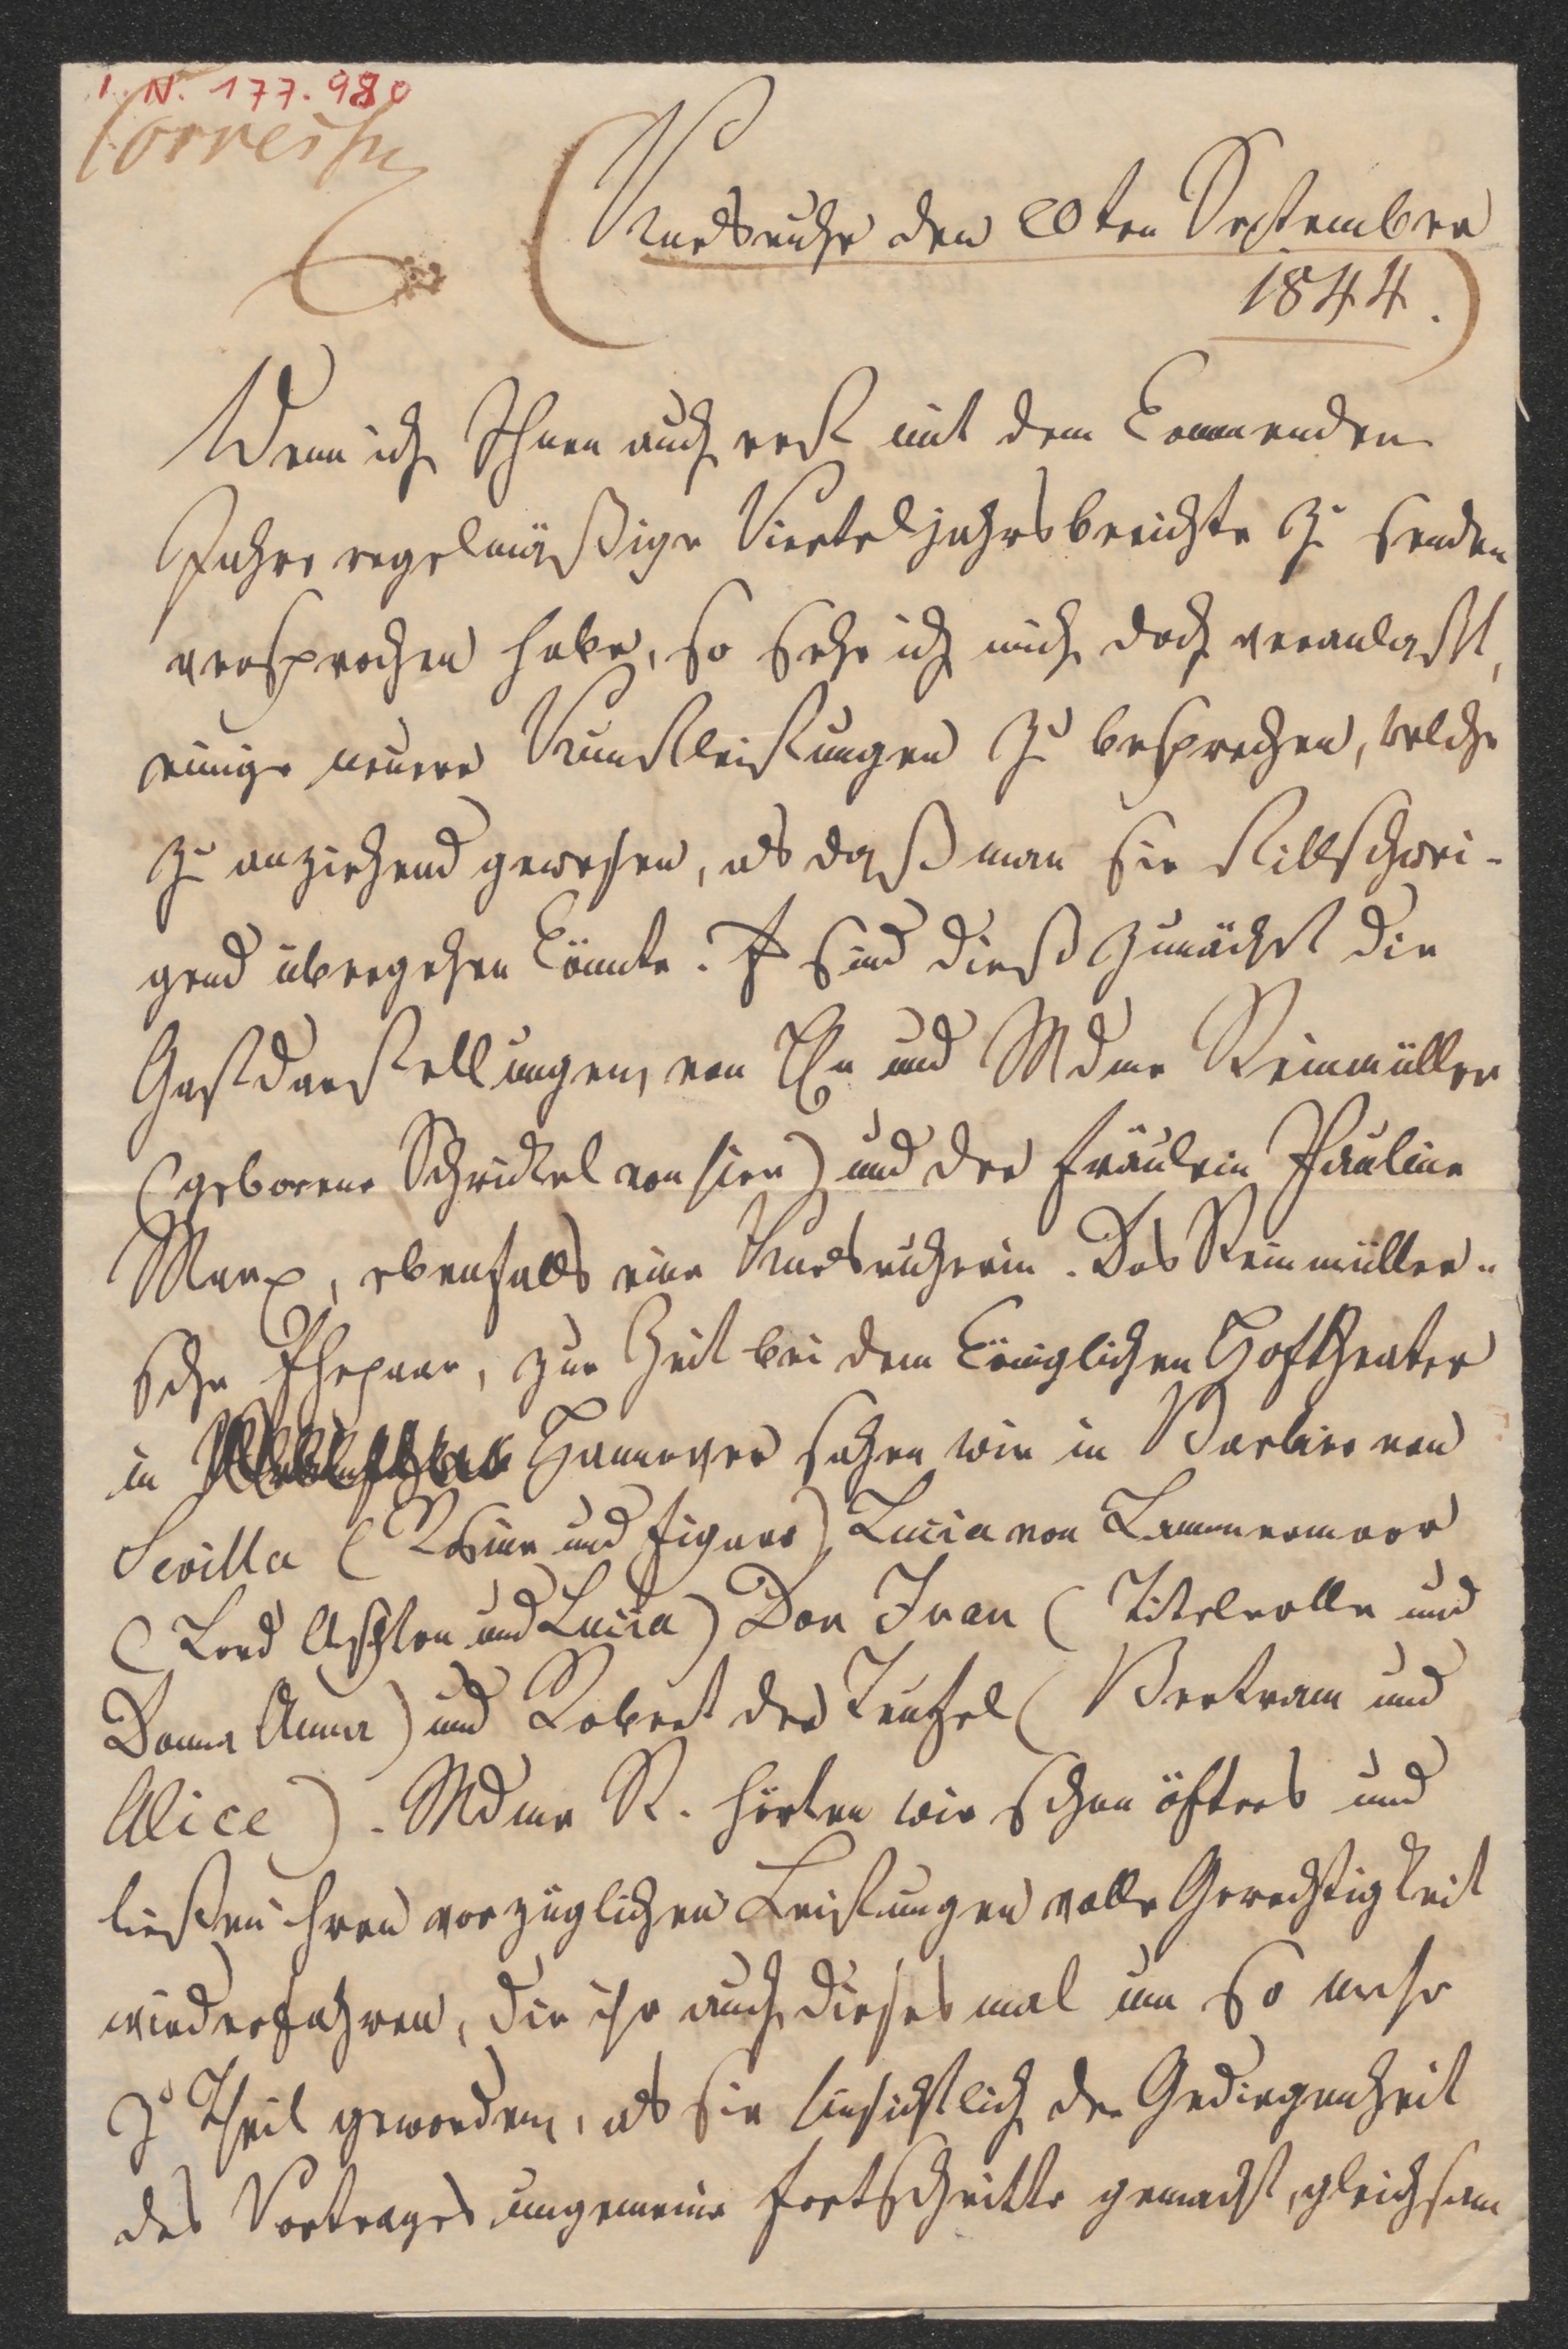 I. N. 177.980
Corresp
Karlsruhe den 20ten September
1844.
Wenn ich Ihnen auch erst mit dem kommenden
Jahre regelmäßige Vierteljahrsberichte zu senden
versprochen habe, so sehe ich mich doch veranlaßt,
einige neuere Kunstleistungen zu besprechen, welche
zu anziehend gewesen, als daß man sie stillschwei-
gend übergehen könnte. Es sind dieß zunächst die
Gastdarstellungen von Hr und Mdme Steinmüller
(geborene Schrickel von hier) und der Fräulein Pauline
Marx, ebenfalls eine Karlsruherin. Das Steinmüller-
sche Ehepaar, zur Zeit bei dem königlichen Hoftheater
in Hannover sahen wir in Barbier von
Sevilla (Rosine und Figaro) Lucia von Lammermoor
(Lord Aschton und Lucia) Don Juan (Titelrolle und
Donna Anna) und Robert der Teufel (Bertram und
Alice). Mdme St. hörten wir schon öfters und
ließen ihren vorzüglichen Leistungen volle Gerechtigkeit
wiederfahren, die ihr auch diesesmal um so mehr
zu Theil geworden, als sie hinsichtlich der Gediegenheit
des Vortrages ungemeine Fortschritte gemacht, gleichsam